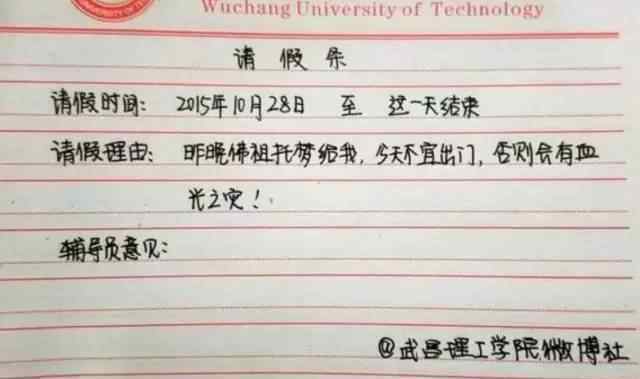 UNIVERSITY OF TE
Wuchang University of Technology
请假条
请假时间: 2015年10月28日 至 这一天结束
请假理由: 昨晚佛祖托梦给我,今天不宜出门,否则会有血
光之灾!
辅导员意见:
@武昌理工学院微博社